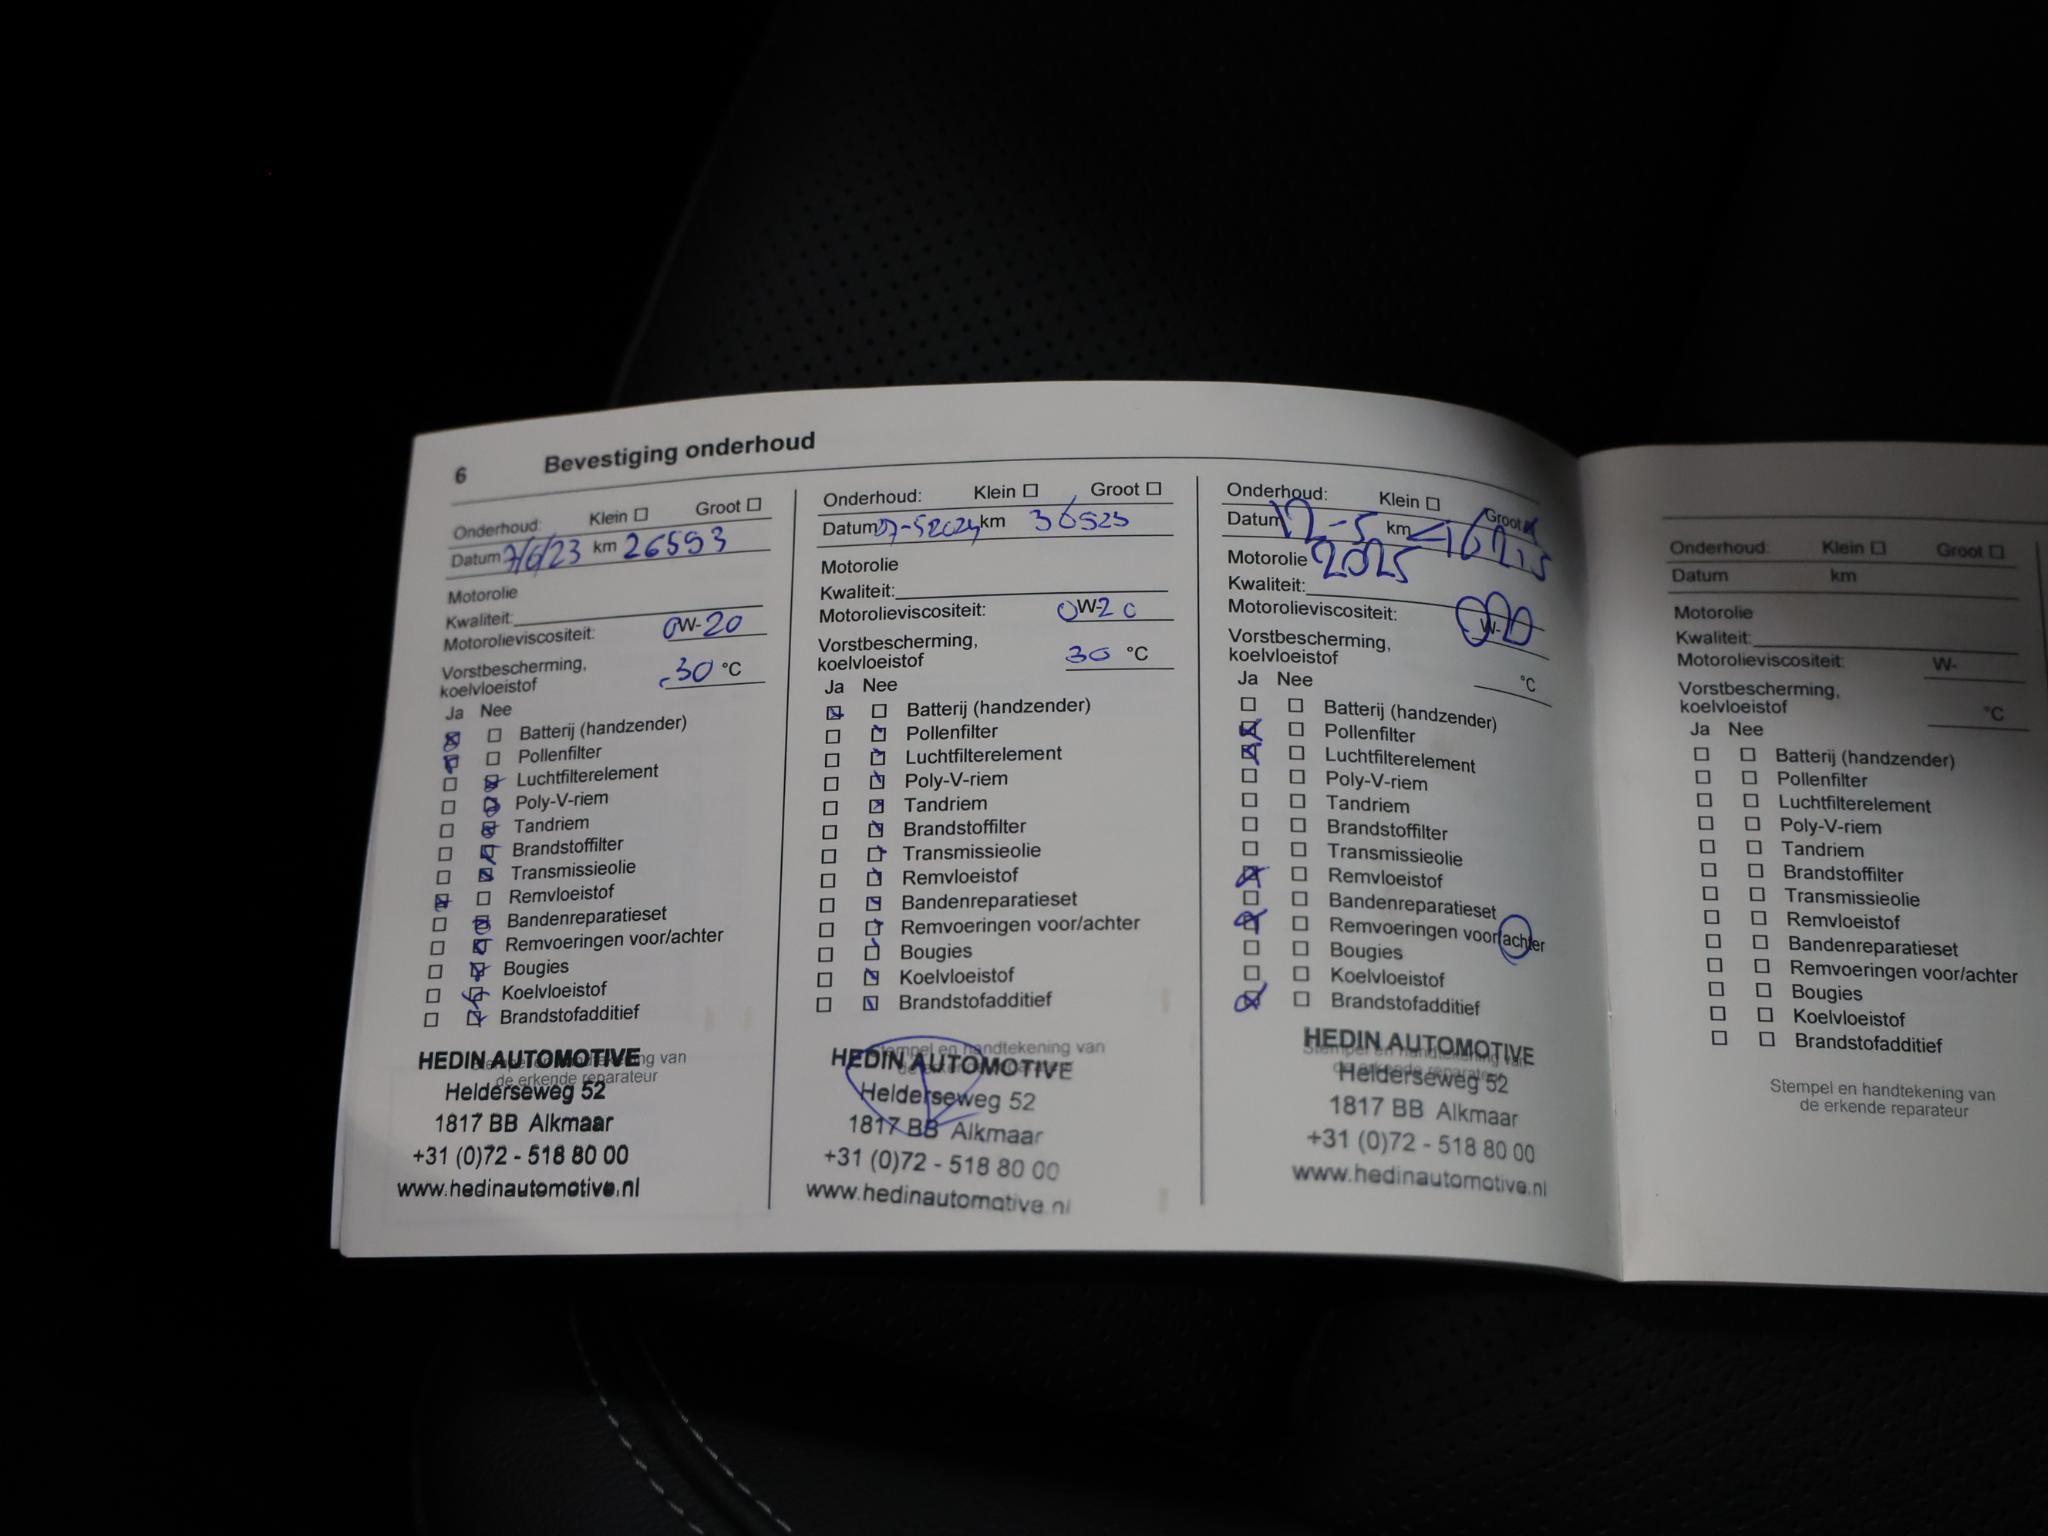 6 Bevestiging onderhoud
Onderhoud: Klein ☐ Groot ☐
Datum 7/6/23 km 26593
Motorolie
Kwaliteit:
Motorolieviscositeit: 0W-20
Vorstbescherming,
koelvloeistof -30 °C
Ja Nee
Batterij (handzender)
Pollenfilter
Luchtfilterelement
Poly-V-riem
Tandriem
Brandstoffilter
Transmissieolie
Remvloeistof
Bandenreparatieset
Remvoeringen voor/achter
Bougies
Koelvloeistof
Brandstofadditief
Stempel en handtekening van
de erkende reparateur
HEDIN AUTOMOTIVE
Helderseweg 52
1817 BB Alkmaar
+31 (0)72 - 518 80 00
www.hedinautomotive.nl
Onderhoud: Klein ☐ Groot ☐
Datum 07-52024 km 36525
Motorolie
Kwaliteit:
Motorolieviscositeit: 0W-20
Vorstbescherming,
koelvloeistof 30 °C
Ja Nee
Batterij (handzender)
Pollenfilter
Luchtfilterelement
Poly-V-riem
Tandriem
Brandstoffilter
Transmissieolie
Remvloeistof
Bandenreparatieset
Remvoeringen voor/achter
Bougies
Koelvloeistof
Brandstofadditief
Stempel en handtekening van
de erkende reparateur
HEDIN AUTOMOTIVE
Helderseweg 52
1817 BB Alkmaar
+31 (0)72 - 518 80 00
www.hedinautomotive.nl
Onderhoud: Klein ☐ Groot
Datum 12-5 km
Motorolie 2025
Kwaliteit:
Motorolieviscositeit: W-
Vorstbescherming,
koelvloeistof °C
Ja Nee
Batterij (handzender)
Pollenfilter
Luchtfilterelement
Poly-V-riem
Tandriem
Brandstoffilter
Transmissieolie
Remvloeistof
Bandenreparatieset
Remvoeringen voor/achter
Bougies
Koelvloeistof
Brandstofadditief
Stempel en handtekening van
de erkende reparateur
HEDIN AUTOMOTIVE
Helderseweg 52
1817 BB Alkmaar
+31 (0)72 - 518 80 00
www.hedinautomotive.nl
Onderhoud: Klein ☐ Groot ☐
Datum km
Motorolie
Kwaliteit:
Motorolieviscositeit: W-
Vorstbescherming,
koelvloeistof °C
Ja Nee
Batterij (handzender)
Pollenfilter
Luchtfilterelement
Poly-V-riem
Tandriem
Brandstoffilter
Transmissieolie
Remvloeistof
Bandenreparatieset
Remvoeringen voor/achter
Bougies
Koelvloeistof
Brandstofadditief
Stempel en handtekening van
de erkende reparateur